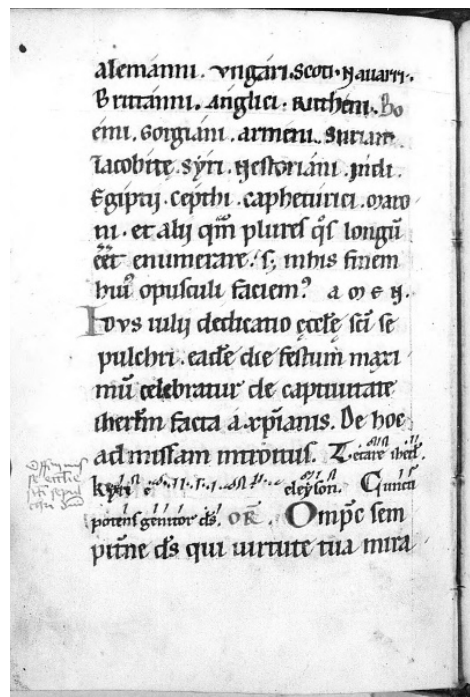 alemanni. vngari. scoti. Nauarri.
Britanni. Anglici. Rutheni. Bo
emi. Gorgiani. armeni. Suriani.
Iacobite. Syri. Nestoriani. indi.
Egiptij. cepthi. capheturici. maro
ni. et alij qm̄ plures q̄s longū
eēt enumerare. s; in his finem
huiꝰ opusculi faciemꝰ. a m e n.
Idvs iulij dedicatio eccl̄e sc̄i se
pulchri. eadē die festum maxi
mū celebratur de captiuitate
iherl̄m facta a xp̄ianis. De hoc
ad missam introitus. Letare iherl̄.
kyri e eleyson. Cuncti
potens genitor ds̄. OR̄. Omp̄c sem
pit̄ne ds̄ qui uirtute tua mira